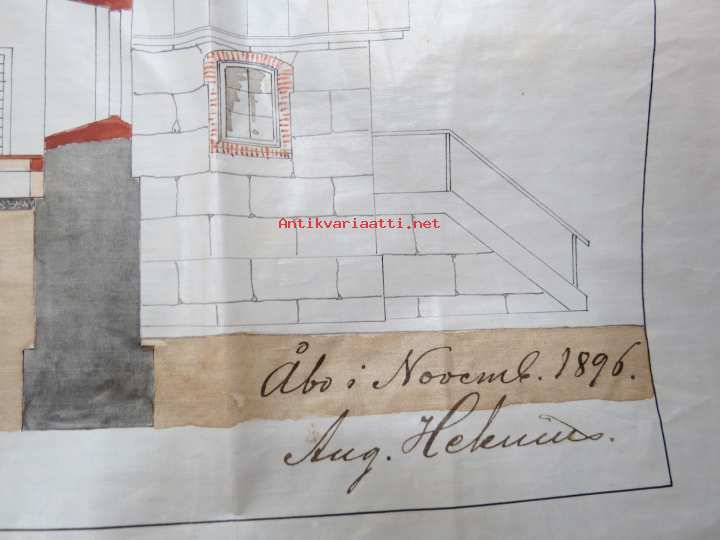 Antikvariaatti.net
Åbo i Novemb. 1896.
Aug. Helenius.